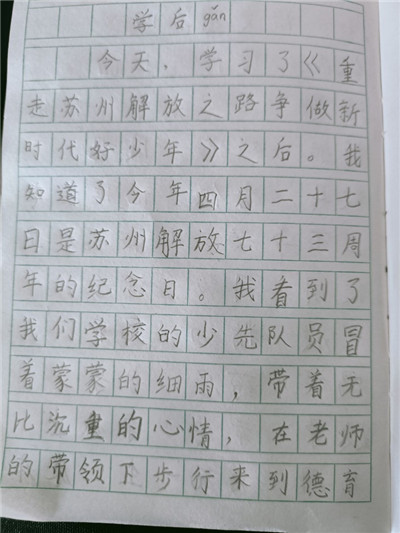 学后gǎn
今天，学习了《重
走苏州解放之路争做新
时代好少年》之后。我
知道了今年四月二十七
日是苏州解放七十三周
年的纪念日。我看到了
我们学校的少先队员冒
着蒙蒙的细雨，带着无
比沉重的心情，在老师
的带领下步行来到德育